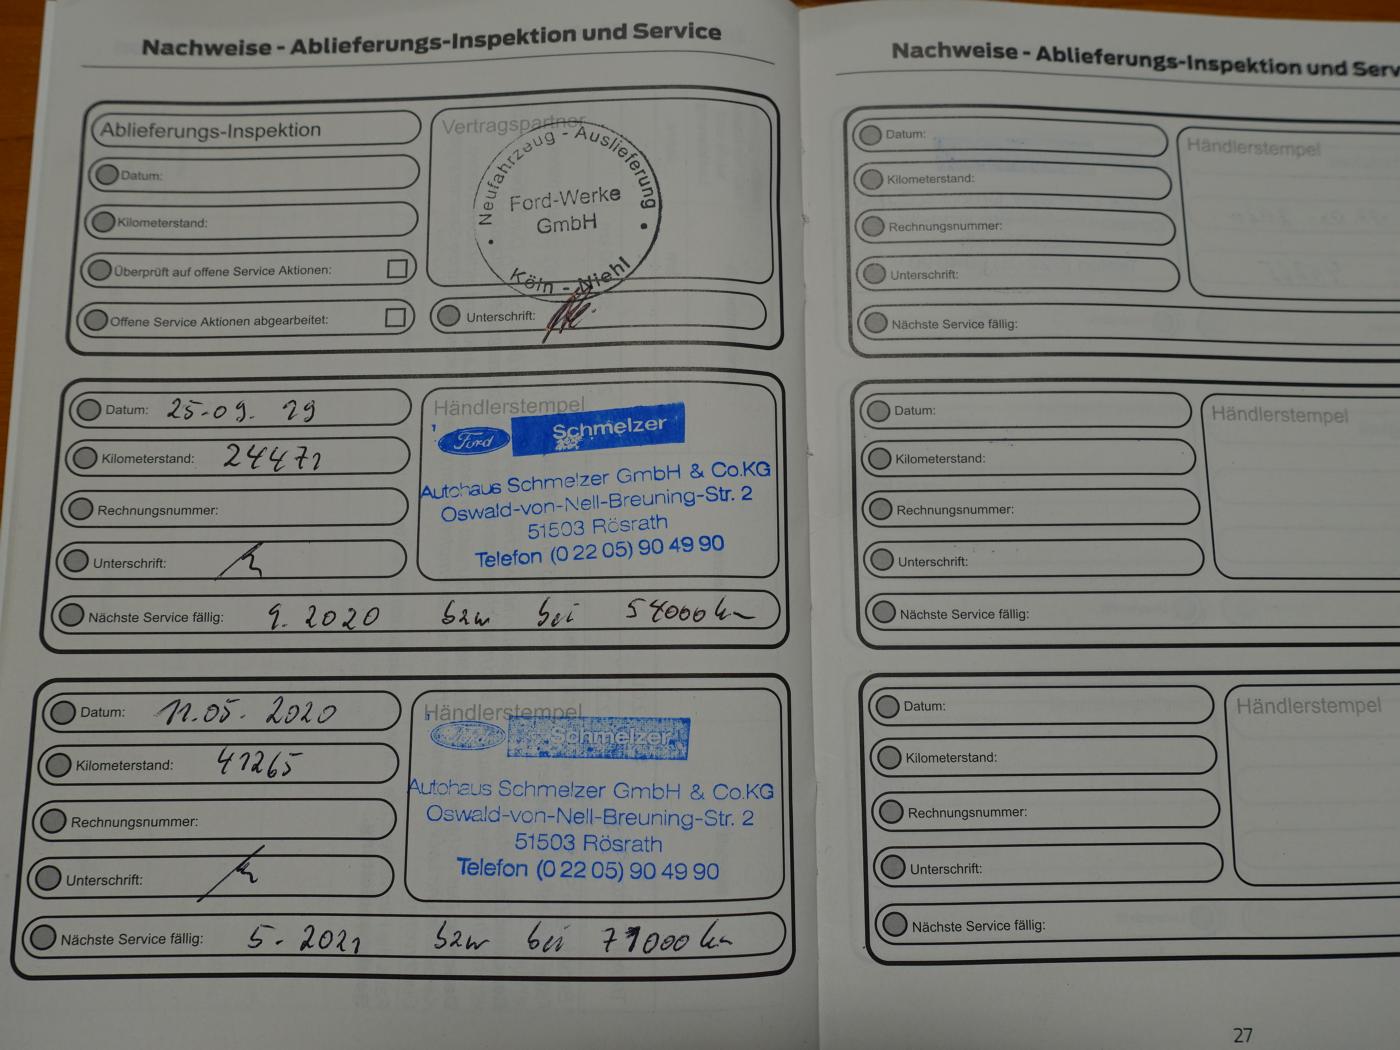 Nachweise - Ablieferungs-Inspektion und Service
Ablieferungs-Inspektion
Datum:
Kilometerstand:
Überprüft auf offene Service Aktionen:
Offene Service Aktionen abgearbeitet:
Vertragspartner
Neufahrzeug - Auslieferung
Ford-Werke
GmbH
Köln - Niehl
Unterschrift:
Datum: 25-09. 19
Kilometerstand: 24471
Rechnungsnummer:
Unterschrift:
Händlerstempel
Ford Schmelzer
Autohaus Schmelzer GmbH & Co.KG
Oswald-von-Nell-Breuning-Str. 2
51503 Rösrath
Telefon (0 22 05) 90 49 90
Nächste Service fällig: 9. 2020 bzw bei 54000 km
Datum: 11.05. 2020
Kilometerstand: 41265
Rechnungsnummer:
Unterschrift:
Händlerstempel
Ford Schmelzer
Autohaus Schmelzer GmbH & Co.KG
Oswald-von-Nell-Breuning-Str. 2
51503 Rösrath
Telefon (0 22 05) 90 49 90
Nächste Service fällig: 5. 2021 bzw bei 71000 km
Nachweise - Ablieferungs-Inspektion und Serv
Datum:
Kilometerstand:
Rechnungsnummer:
Unterschrift:
Händlerstempel
Nächste Service fällig:
Datum:
Kilometerstand:
Rechnungsnummer:
Unterschrift:
Händlerstempel
Nächste Service fällig:
Datum:
Kilometerstand:
Rechnungsnummer:
Unterschrift:
Händlerstempel
Nächste Service fällig:
27